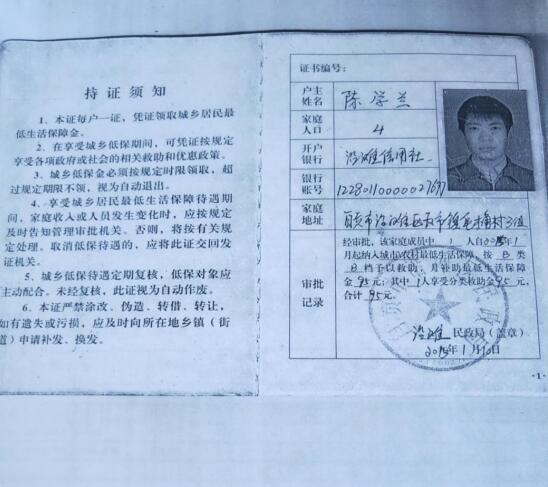 持证须知
1、本证每户一证，凭证领取城乡居民最
低生活保障金。
2、在享受城乡低保期间，可凭证按规定
享受各项政府或社会的相关救助和优惠政策。
3、城乡低保金必须按规定时限领取，超
过规定期限不领，视为自动退出。
4、享受城乡居民最低生活保障待遇期
间，家庭收入或人员发生变化时，应按规定
及时告知管理审批机关。否则，将按有关规
定处理。取消低保待遇的，应将此证交回发
证机关。
5、城乡低保待遇定期复核，低保对象应
主动配合。未经复核，此证视为自动作废。
6、本证严禁涂改、伪造、转借、转让，
如有遗失或污损，应及时向所在地乡镇（街
道）申请补发、换发。
证书编号：
户主
姓名
陈学兰
家庭
人口
4
开户
银行
沿滩信用社
银行
账号
家庭
地址
自贡市沿滩区
审批
记录
经审批，该家庭成员中 1 人自2015年1
月起纳入城市/农村最低生活保障，按 B 类
B 档予以救助，月补助最低生活保障
金 95 元；其中 1 人享受分类救助金95 元，
合计 95 元。
沿滩 民政局（盖章）
2015年1月10日
·1·